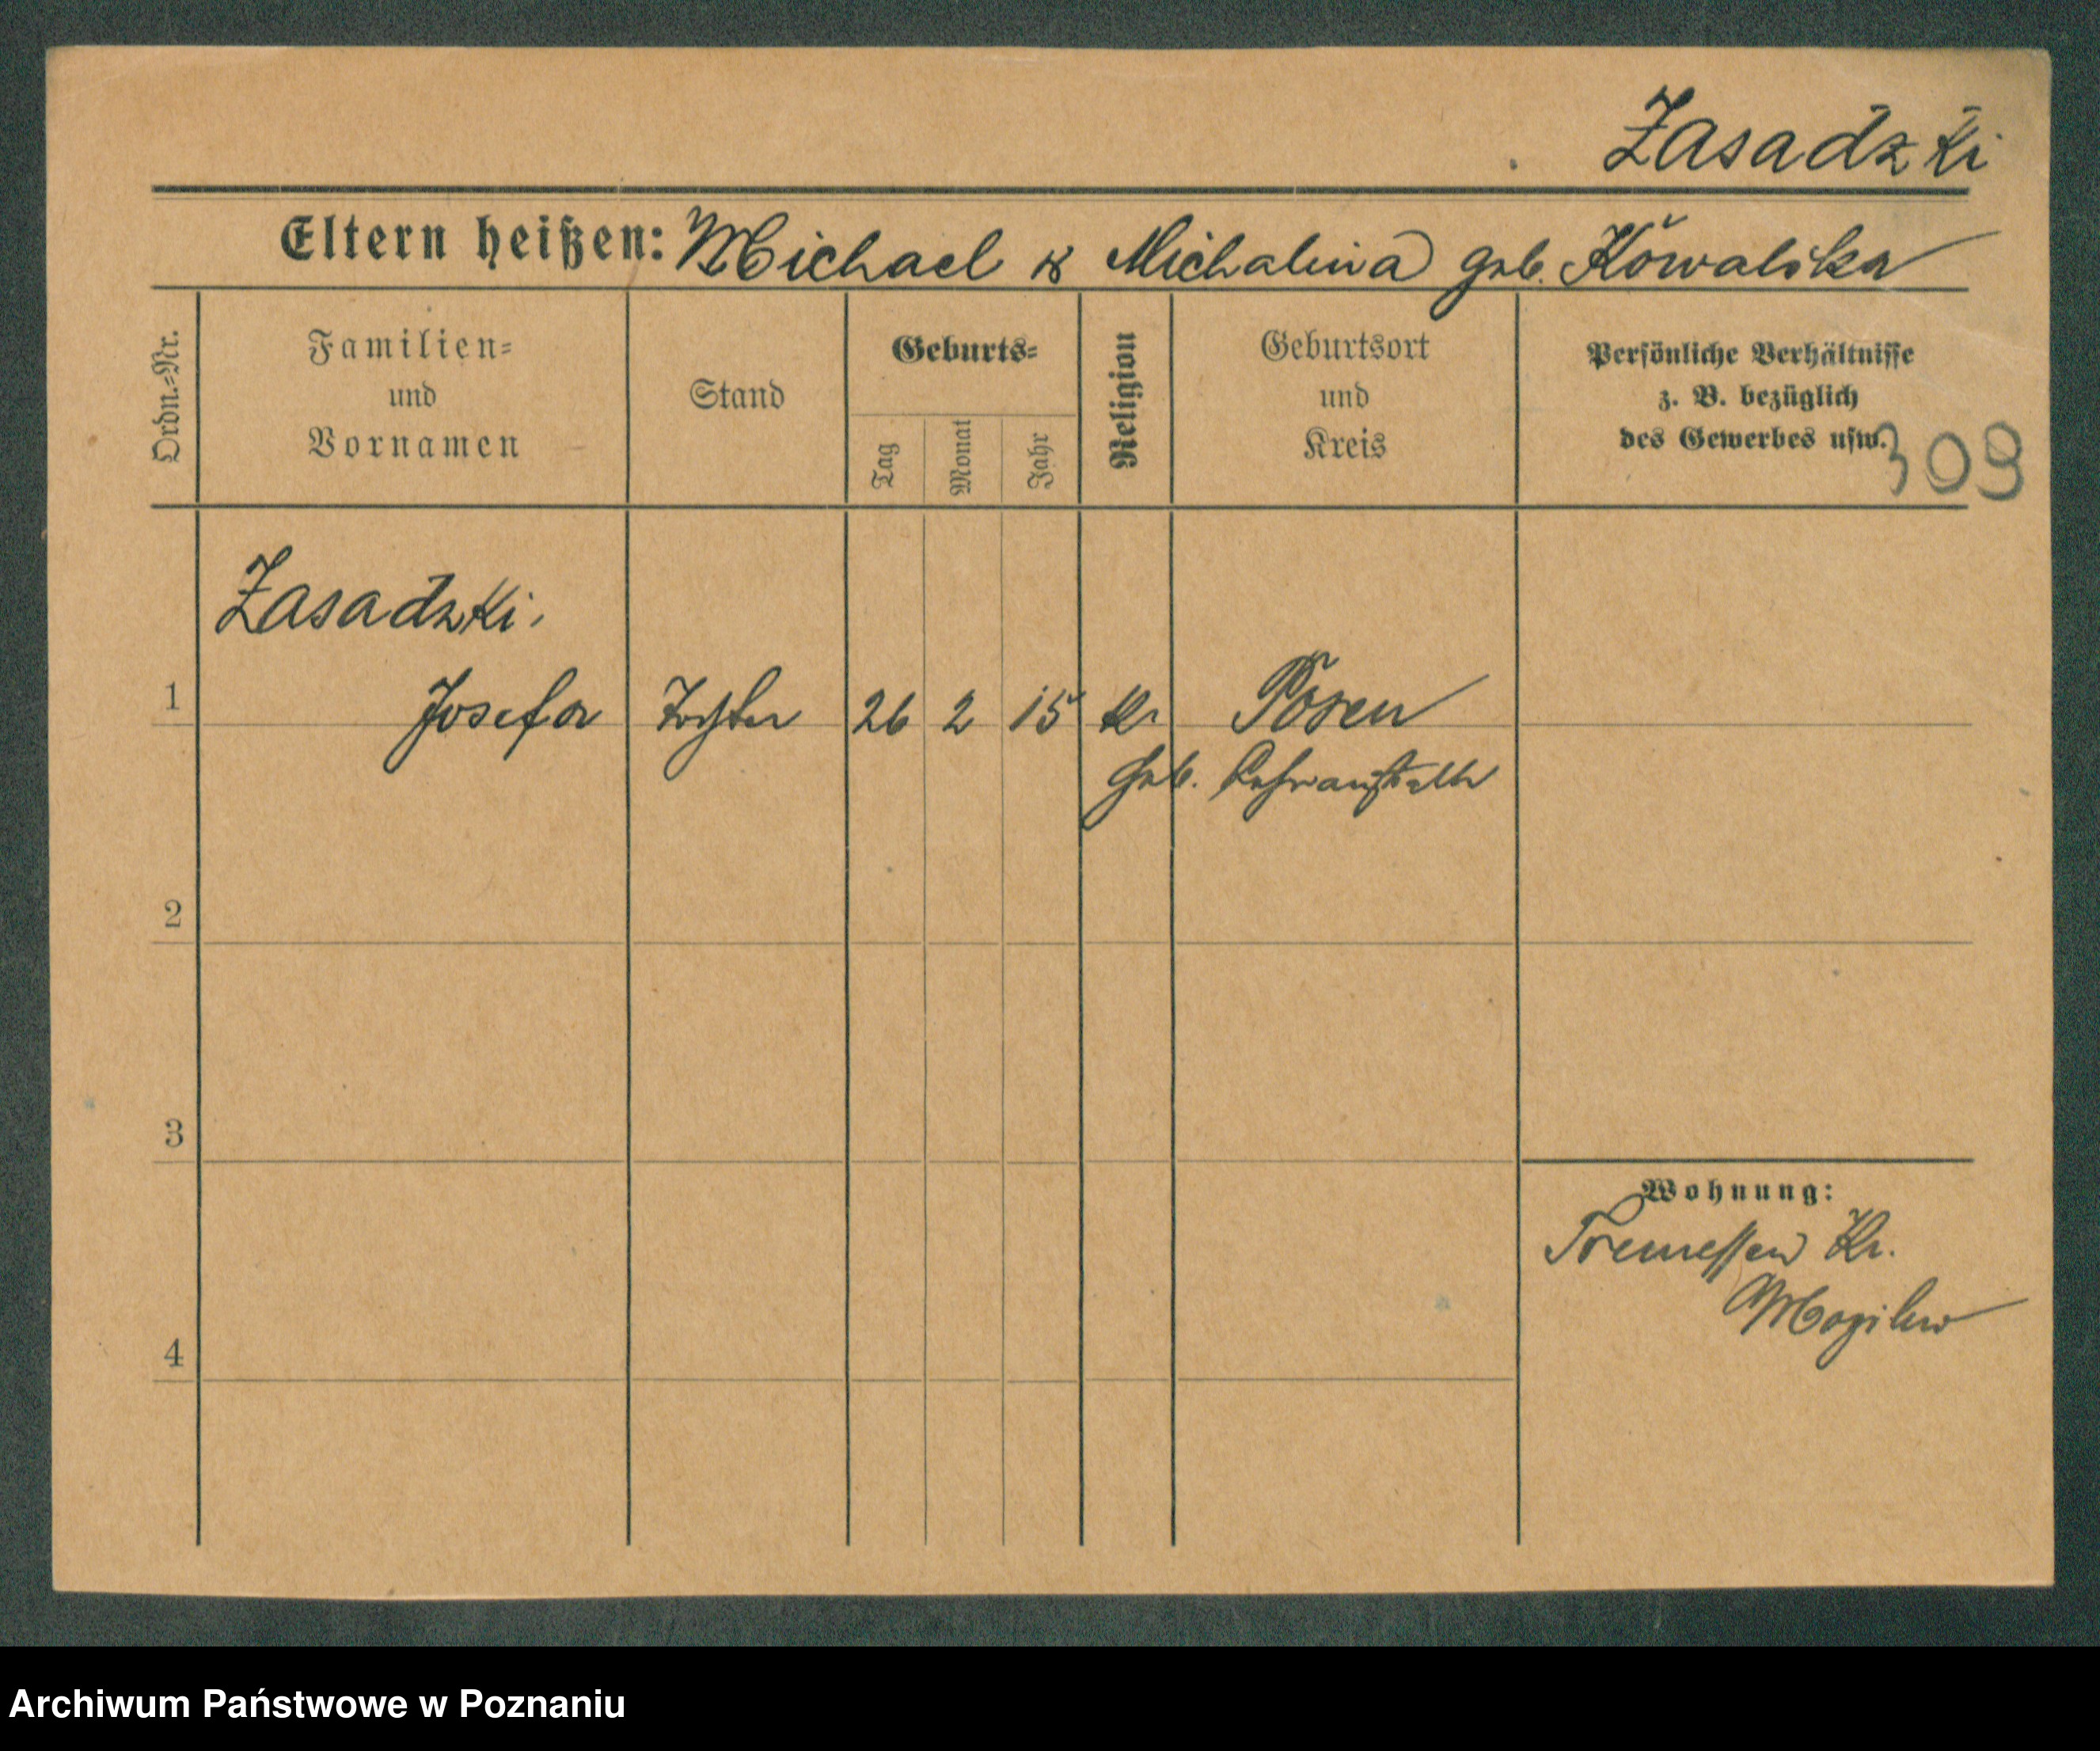 Zasadzki
Eltern heißen: Michael & Michalina geb. Kowalska
Ordn.=Nr.
Familien=
und
Vornamen
Stand
Geburts=
Tag
Monat
Jahr
Religion
Geburtsort
und
Kreis
Persönliche Verhältnisse
z. B. bezüglich
des Gewerbes usw.
309
Zasadzki.
1 Josefa Tochter 26 2 15 Posen
Geb. Lehranstalt
2
3
4
Wohnung:
Tremessen Kr.
Mogilno
Archiwum Państwowe w Poznaniu